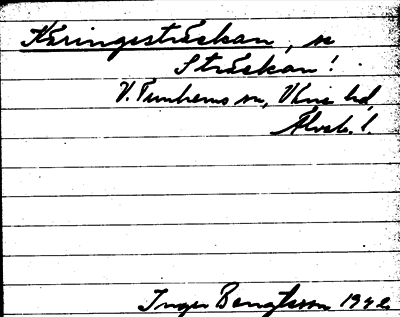 Käringesträskan, se
Sträskan!
V. Tunhems sn, Väne hd,
Älvsb. l.
Inger Bengtsson 1942